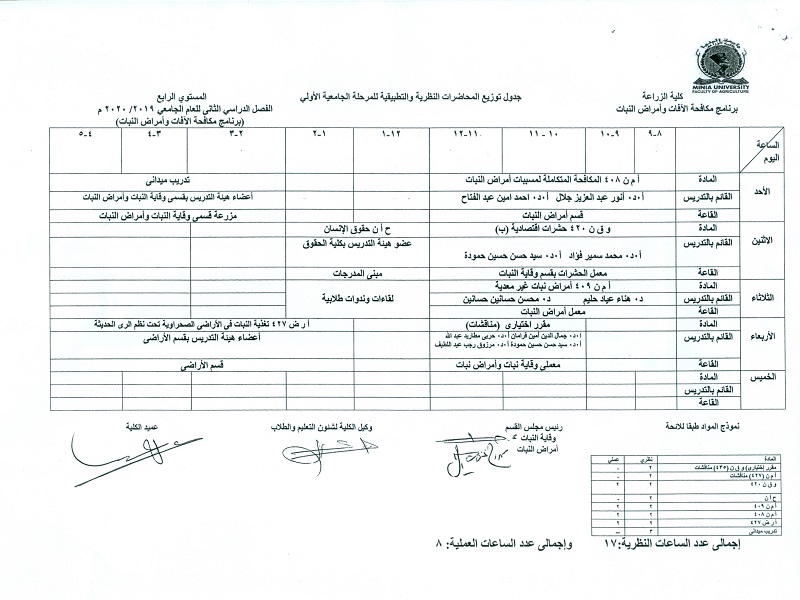 MINIA UNIVERSITY
FACULTY OF AGRICULTURE
كلية الزراعة
برنامج مكافحة الآفات وأمراض النبات
جدول توزيع المحاضرات النظرية والتطبيقية للمرحلة الجامعية الأولي
المستوي الرابع
الفصل الدراسي الثانى للعام الجامعي ٢٠١٩/ ٢٠٢٠ م
(برنامج مكافحة الآفات وأمراض النبات)
الساعة
اليوم
٨-٩ ٩-١٠ ١٠-١١ ١١-١٢ ١٢-١ ١-٢ ٢-٣ ٣-٤ ٤-٥
الأحد
المادة أ م ن ٤٠٨ المكافحة المتكاملة لمسببات أمراض النبات تدريب ميدانى
القائم بالتدريس أ.د. أنور عبد العزيز جلال أ.د. احمد امين عبد الفتاح أعضاء هيئة التدريس بقسمى وقاية النبات وأمراض النبات
القاعة قسم أمراض النبات مزرعة قسمى وقاية النبات وأمراض النبات
الاثنين
المادة و ق ن ٤٢٠ حشرات اقتصادية (ب) ح أ ن حقوق الإنسان
القائم بالتدريس أ.د. محمد سمير فؤاد أ.د. سيد حسن حسين حمودة عضو هيئة التدريس بكلية الحقوق
القاعة معمل الحشرات بقسم وقاية النبات مبنى المدرجات
الثلاثاء
المادة أ م ن ٤٠٩ أمراض نبات غير معدية
القائم بالتدريس د. هناء عياد حليم د. محسن حسانين حسانين لقاءات وندوات طلابية
القاعة معمل أمراض النبات
الأربعاء
المادة مقرر اختيارى (مناقشات) أ ر ض ٤٢٧ تغذية النبات في الأراضى الصحراوية تحت نظم الرى الحديثة
القائم بالتدريس أ.د. جمال الدين أمين فرامان أ.د. حربى مطاريد عبد الله أعضاء هيئة التدريس بقسم الأراضى
أ.د. سيد حسن حسين حمودة أ.د. مرزوق رجب عبد اللطيف
القاعة معملى وقاية نبات وأمراض نبات قسم الأراضى
الخميس
المادة
القائم بالتدريس
القاعة
نموذج المواد طبقا للائحة
رئيس مجلس القسم
وقاية النبات
أمراض النبات
وكيل الكلية لشئون التعليم والطلاب
عميد الكلية
المادة نظري عملي
مقرر إختيارى) و ق ن (٤٣٥) مناقشات ٢ -
أ م ن (٤٢٧) مناقشات ٢ -
و ق ن ٤٢٠ ٢ ٢
ح أ ن ٢ -
أ م ن ٤٠٩ ٢ ٢
أ م ن ٤٠٨ ٢ ٢
أ ر ض ٤٢٧ ٢ ٢
تدريب ميدانى ٣ --
إجمالي عدد الساعات النظرية: ١٧ وإجمالى عدد الساعات العملية: ٨